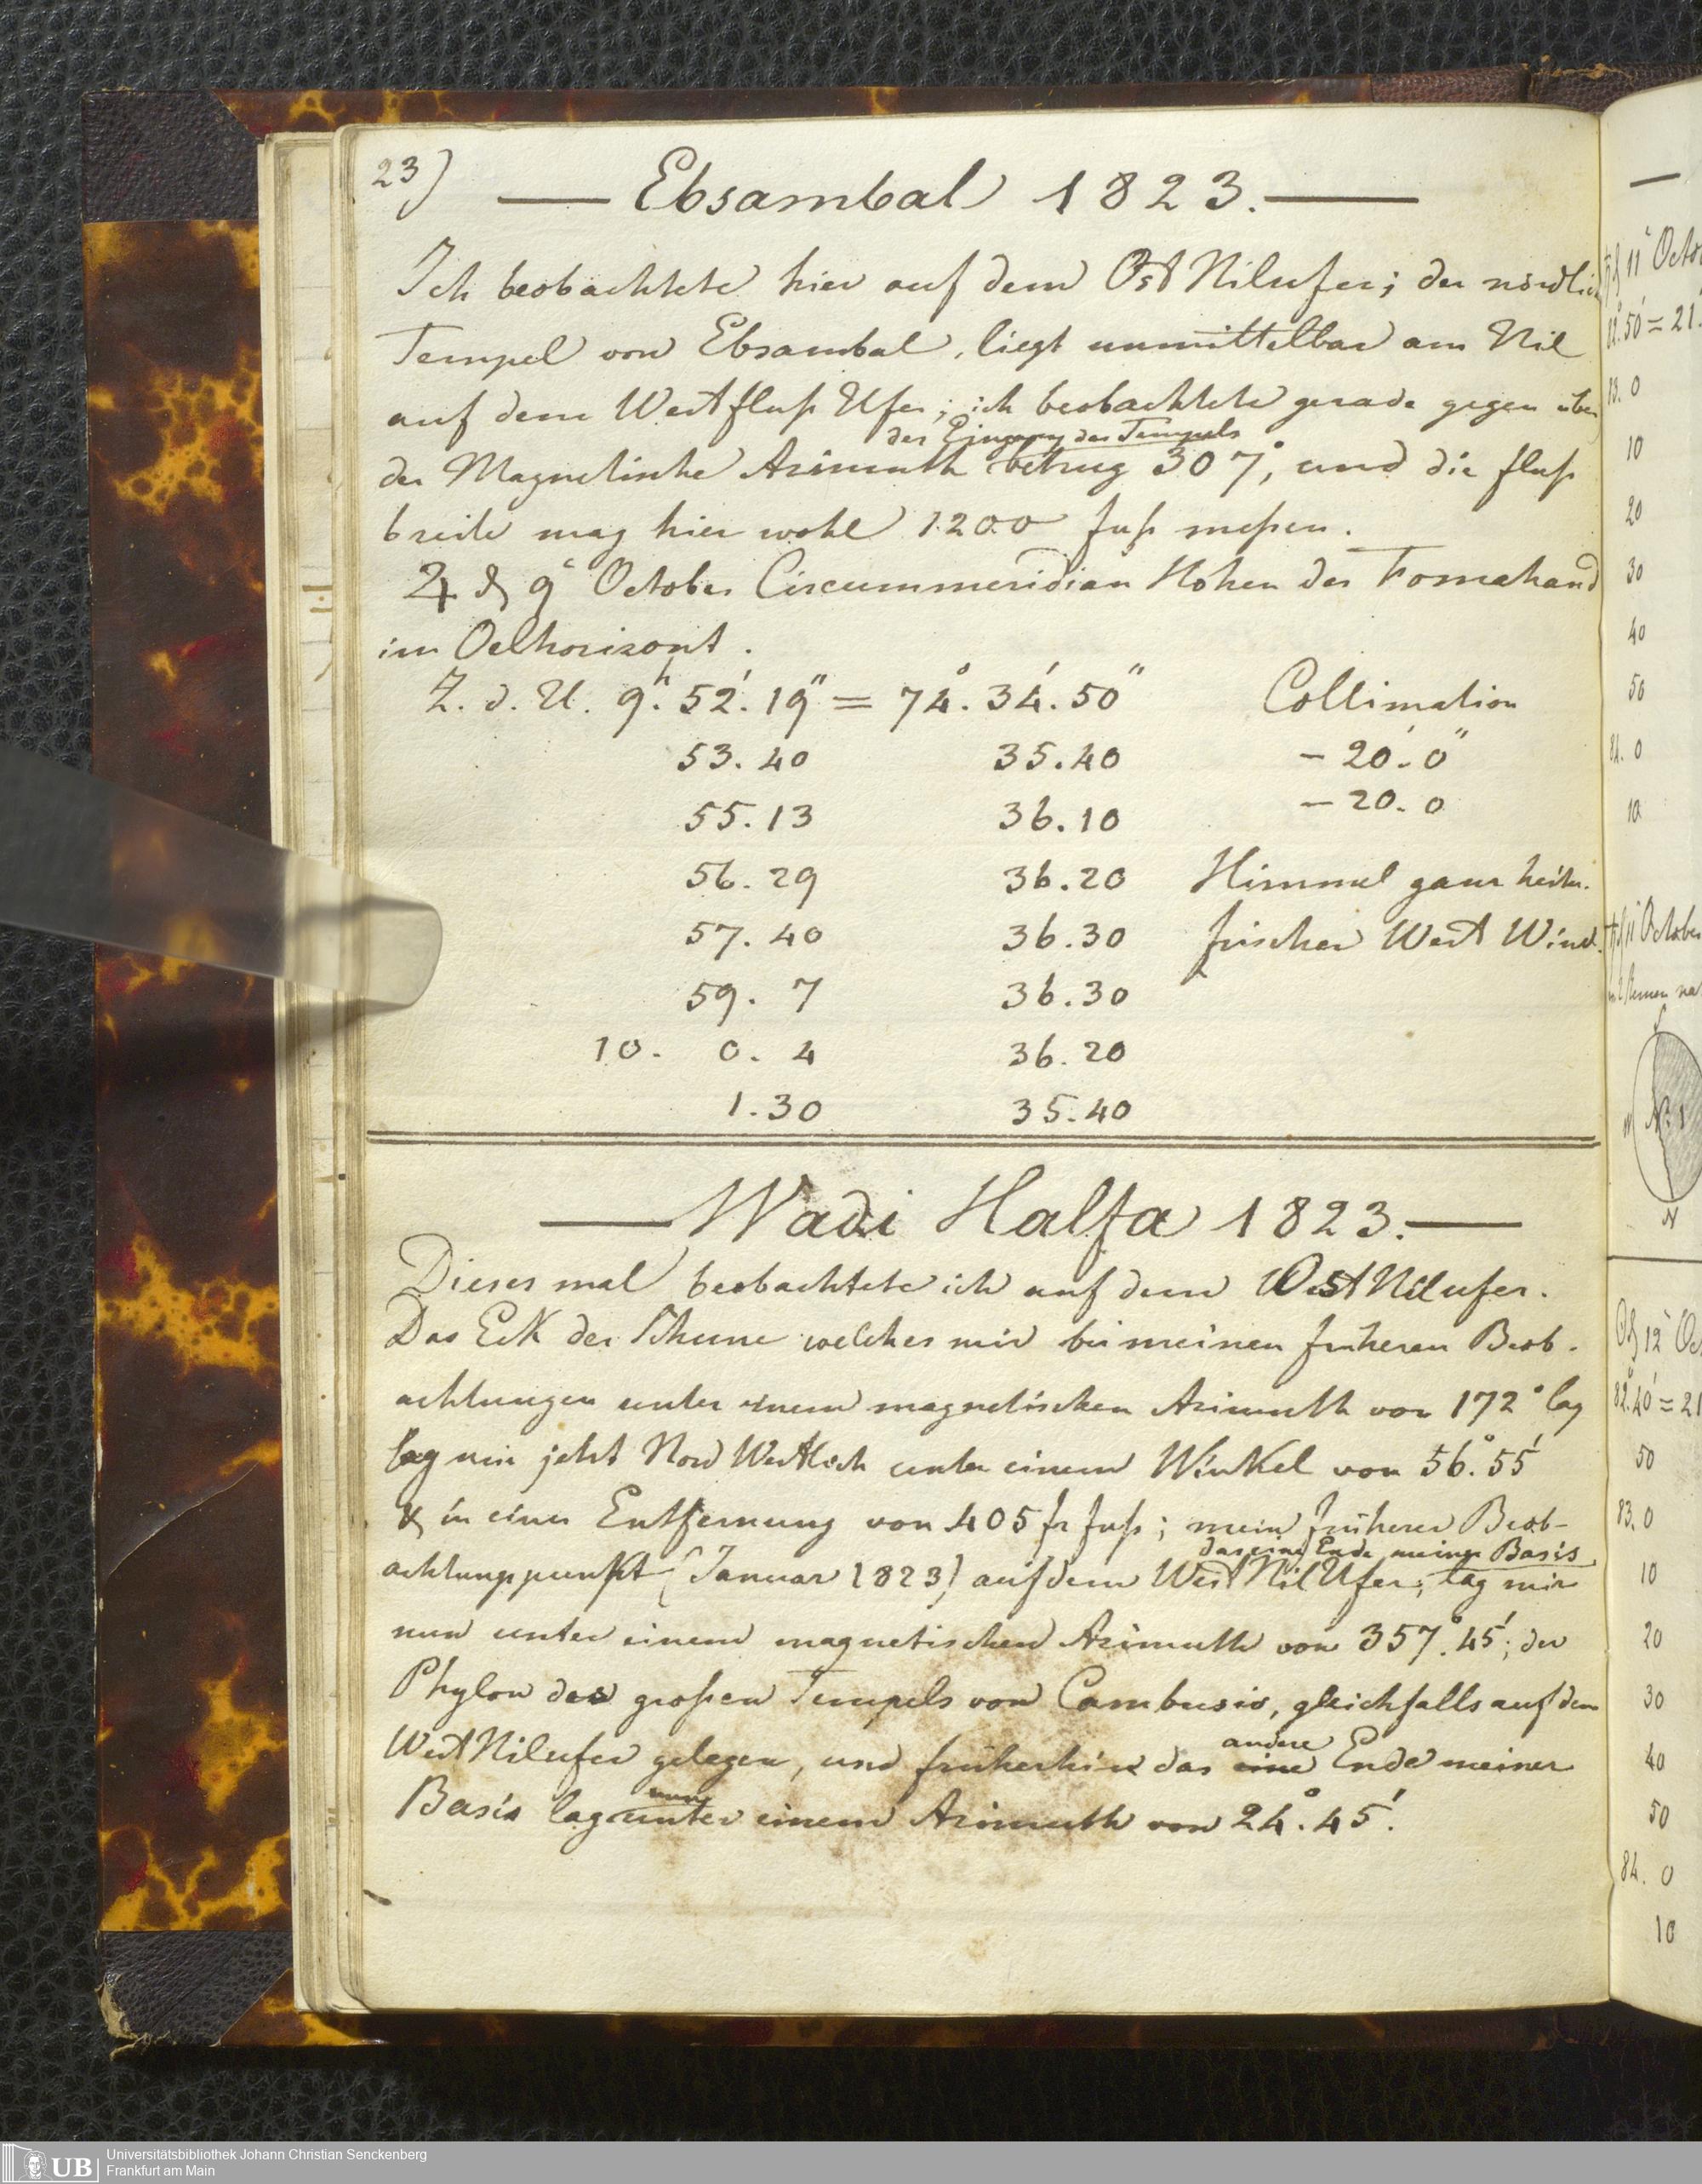 23)
Ebsambal 1823.
Ich beobachtete hier auf dem Ost Nilufer; der nördlich
Tempel von Ebsambal, liegt unmittelbar am Nil
auf dem Westfluß Ufer; ich beobachtete gerade gegen über
der Eingang des Tempels
der Magnetische Azimuth betrug 307°, und die fluß
breite mag hier wohl 1200 fuß meßen.
♃ d 9 October Circummeridian Hohen des Fomahand
im Oelhorizont.
Z. d. U. 9h. 52'. 19" = 74°. 34'. 50" Collimation
53. 40 35. 40 - 20'. 0"
55. 13 36. 10 - 20. 0
56. 29 36. 20 Himmel ganz heiter.
57. 40 36. 30 frischer West Wind.
59. 7 36. 30
10. 0. 4 36. 20
1. 30 35. 40
Wadi Halfa 1823.
Dieses mal beobachtete ich auf dem Ost Nilufer.
Das Eck der Schune welches mir bei meinen früheren Beob-
achtungen unter einem magnetischen Azimuth von 172° lag
lag mir jetzt Nord Westlich unter einem Winkel von 56°. 55'
& in einer Entfernung von 405 fr fuß; mein früherer Beob-
das eine Ende meiner Basis
achtungspunkt (Januar 1823) auf dem West Nil Ufer, lag mir
nun unter einem magnetischen Azimuth von 357°. 45'; der
Phylon des großen Tempels von Cambusis, gleichfalls auf dem
andere
West Nilufer gelegen, und früherhin das eine Ende meiner
nun
Basis lag unter einem Azimuth von 24°. 45'.
11 October
50' = 21
13. 0
10
20
30
40
50
84. 0
10
11 October
N
12 Oc
82°. 40' = 21
50
83. 0
10
20
30
40
50
84. 0
10
UB
Universitätsbibliothek Johann Christian Senckenberg
Frankfurt am Main